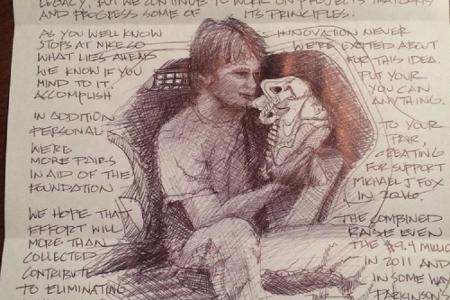 LEGACY, BUT WE CONTINUE TO WORK ON PROJECTS THAT
AND PROGRESS SOME OF ITS PRINCIPLES.
AS YOU WELL KNOW INNOVATION NEVER
STOPS AT NIKE SO WE'RE EXCITED ABOUT
WHAT LIES FOR THIS IDEA.
WE KNOW IF YOU PUT YOUR
MIND TO IT, YOU CAN
ACCOMPLISH ANYTHING.
IN ADDITION TO YOUR
PERSONAL PAIR,
WE'RE CREATING
MORE PAIRS FOR SUPPORT
IN AID OF THE MICHAEL J FOX
FOUNDATION IN
WE HOPE THAT THE COMBINED
EFFORT WILL RAISE EVEN
MORE THAN THE $9.4
COLLECTED IN 2011 AND
CONTRIBUTE IN SOME WAY
TO ELIMINATING PARKINSON'S